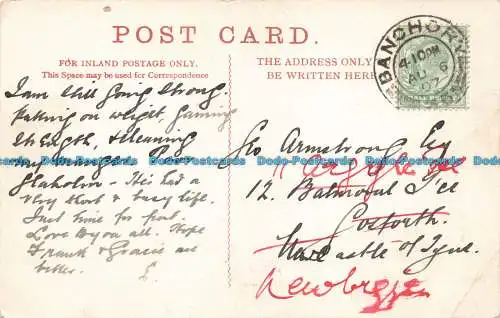 POST CARD.
FOR INLAND POSTAGE ONLY.
This Space may be used for Correspondence
THE ADDRESS ONLY
BE WRITTEN HERE
BANCHORY
4-10PM
AU 6
07
I am still going strong.
Putting on weight, gaining
strength, & cleaning
my
Poor
He's had a
very short & busy life.
Just time for post.
Love to you all. Hope
Frank & Gracie are
better.
Geo Armstrong Esq
12. Balmoral Tce
Gosforth.
Newcastle o/ Tyne.
Dodo-Postcards Dodo-Postcards Dodo-Postcards Dodo-Postcards